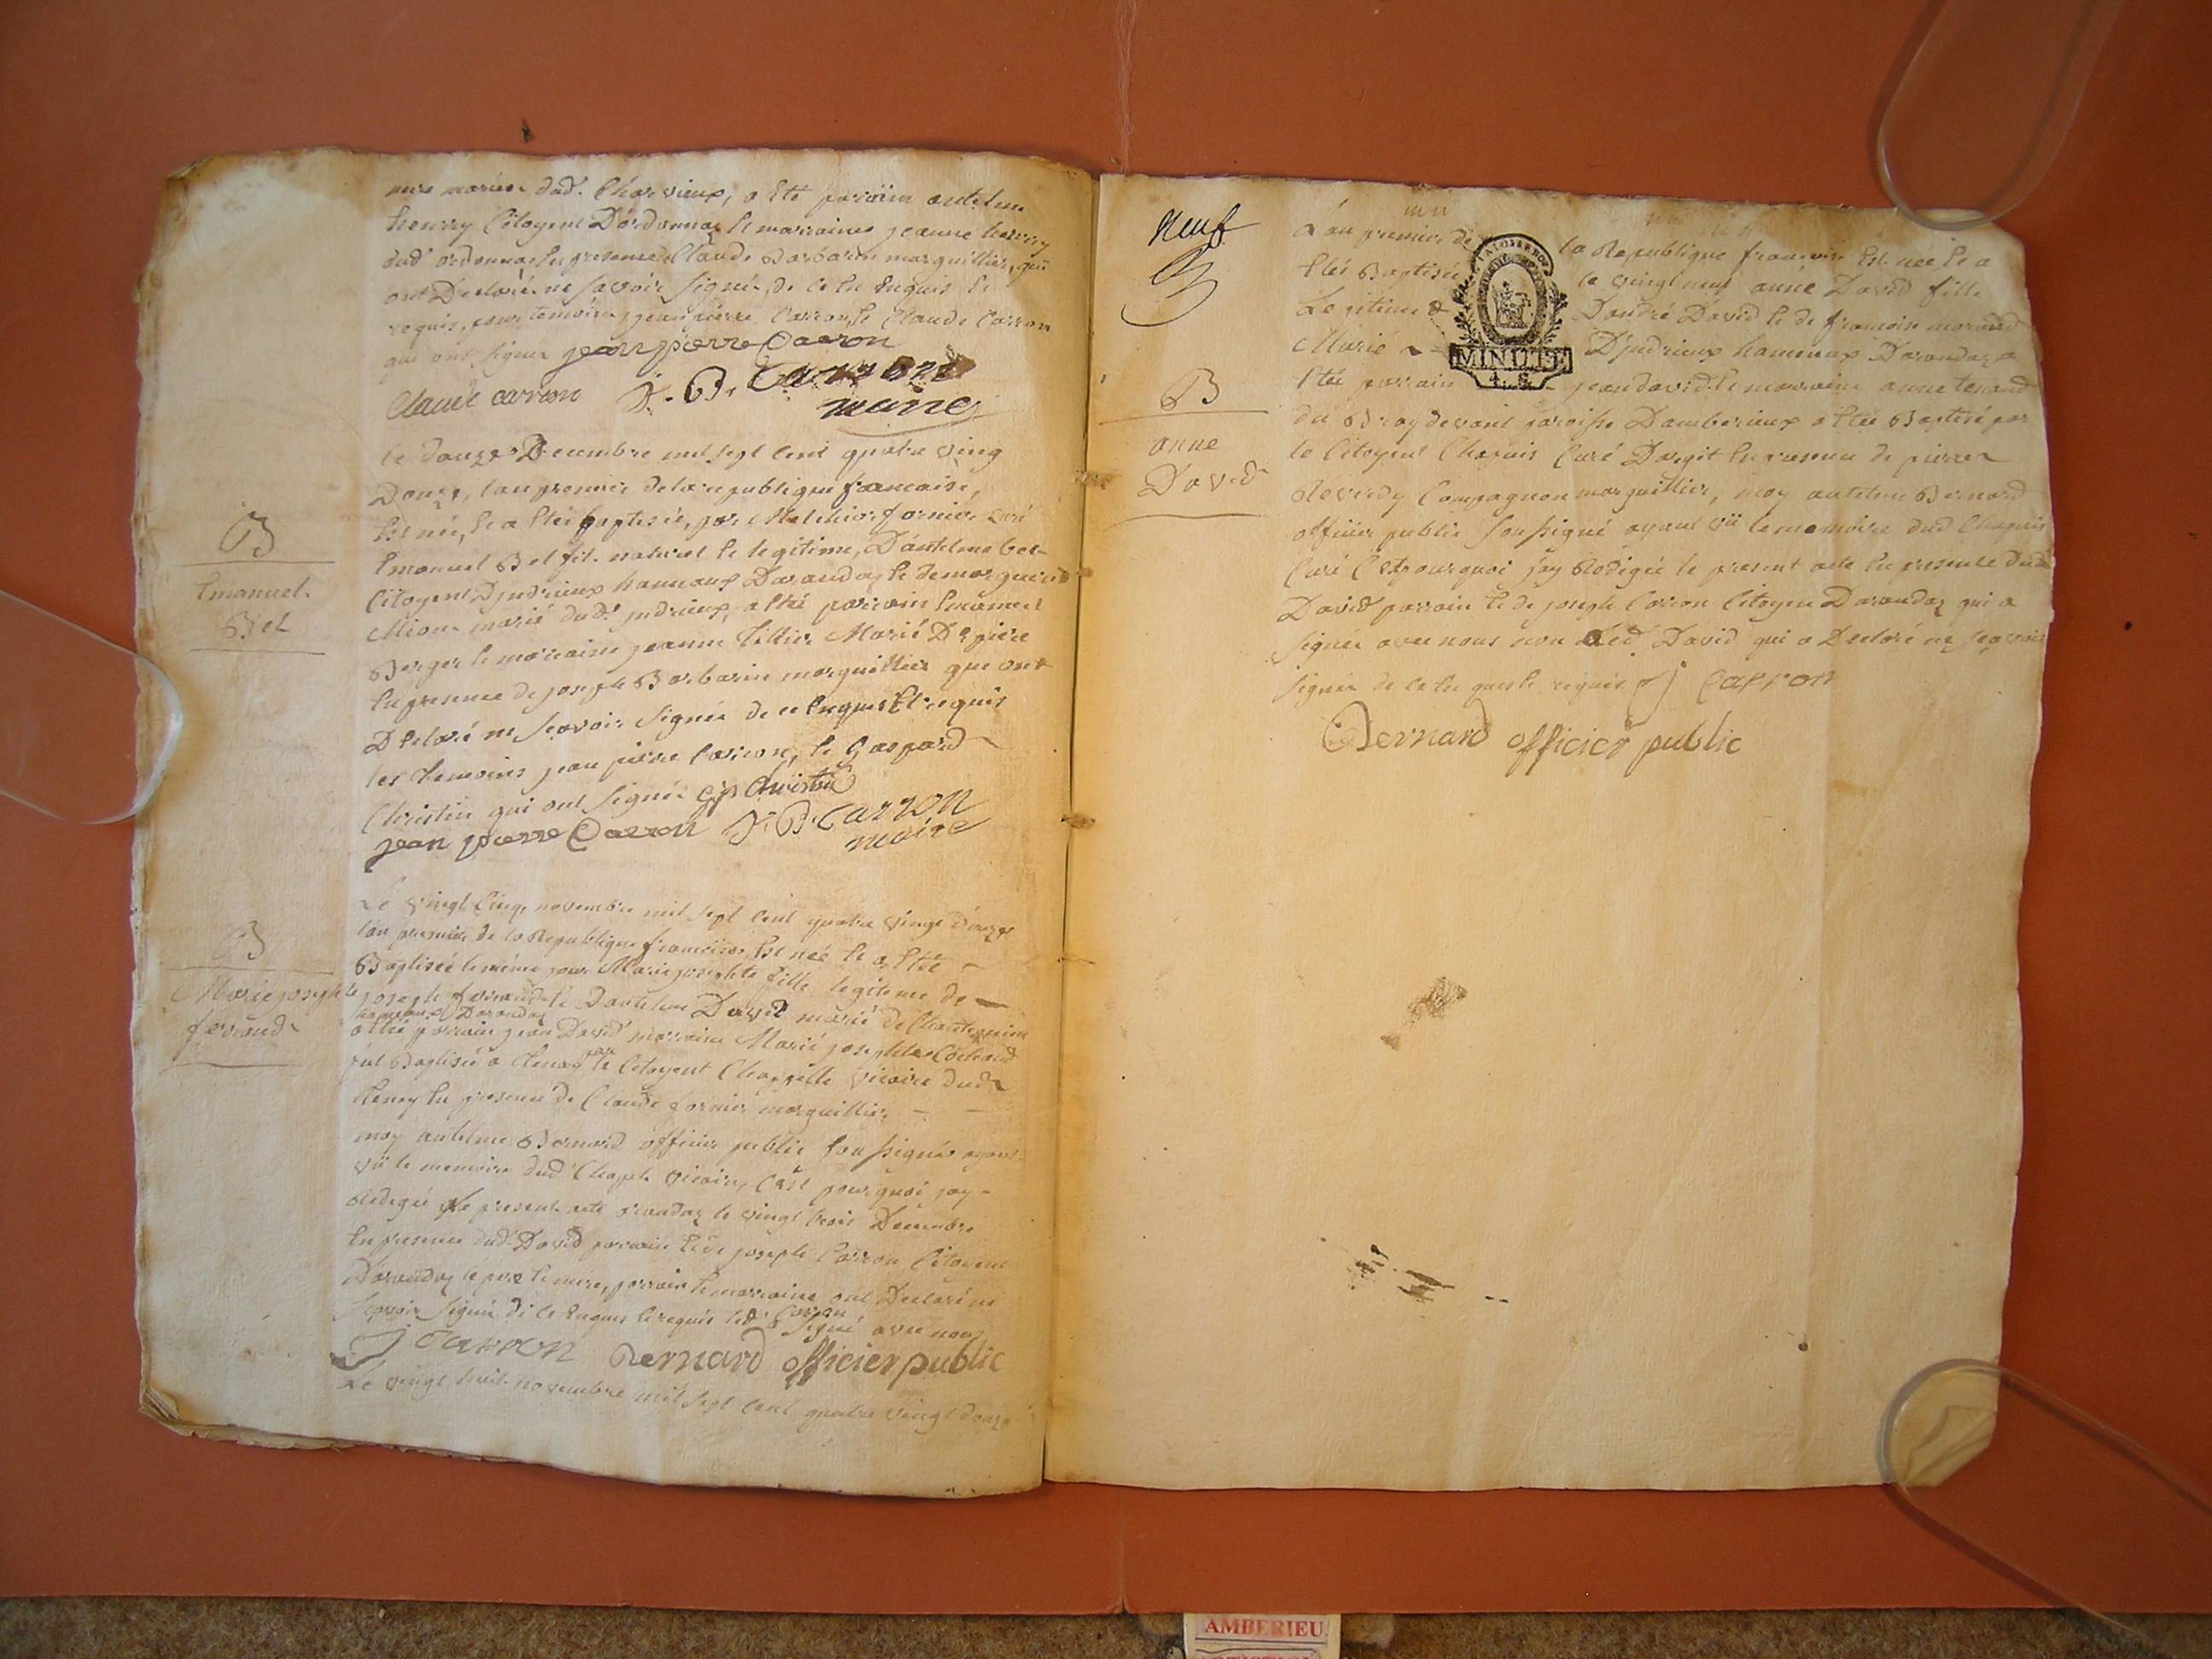 dud. Charvieux, a été parrain antelme
henry Citoyent D'ordonnaz Et marraine jeanne henry
dud' ordonnaz En presence Claude Barbarin marguillier, qui
ont Declaré ne savoir signér, de ce En quis Et
requis, pour temoins, jean pierre Carron, Et Claude Carron
qui ont signer jean pierre Carron
Claude carron J. B. Carron
maire
le douze Decembre mil sept Cent quatre ving
Douze, l'an premier de la republique francaise,
Est née, Et a Etéé baptisée, par Melchior fornier curé
Emanuel Bel fils naturel Et legitime, D'antelme bel
Citoyent D'jndrieux hameaux Darandaz Et de marguerite
Miom marié dud' jndrieux, a Etéé parrain Emanuel
Berger Et marraine jeanne Tillier Marié
En presence de joseph Barbarin marguillier que ont
Declaré ne sçavoir Signér de ce Enquis Et requis
les Temoins jean pierre Carron, Et Gaspard
Christin qui ont signér Christin
jean pierre Carron J. B. Carron
maire
B
Emanuel
Bel
Le vingt Cinq novembre mil sept Cent quatre vingt douze
l'an premier de la Republique francoise, Est née Et a Etéé
Baptisée le même jour Marie josephte fille legitime de
joseph ferrand Et Dantelme David marié de
hameaux Darandaz
a Etéé parrain jean David marraine Marie josephte
fut Baptisée a Tenay par le Citoyent Chappelle vicaire dud
Tenay En presence de Claude fornier marguillier
moy antelme Bernard officier public soussigné ayant
vü le memoire dud Chapelle vicaire, C'est pourquoi jay
Redigée le present acte arandaz le vingt trois Decembre
En presence dud. David parrain Et de joseph Carron Citoyent
Darandaz le pere Et mere, parrain Et marraine ont Declaré ne
sçavoir signér de Ce Enquis Et requis led. Carron a signé avec nous
J Carron Bernard officier public
Le vingt huit novembre mil sept Cent quatre vingt douze
B
Marie josephte
ferrand
neuf
B
anne
David
L'an premier de la Republique francoise Est née Et a
Etéé Baptisée le vingt neuf anne David fille
Legitime D'andré David Et de francoise morand
Marié D'jndrieux hameaux Darandaz a
MINUTE
4. S.
Etéé parrain jean david Et marraine anne
du Bray devant paroisse Damberieux a Etéé Baptisé par
le Citoyent Chapuis Curé En presence de pierre
Reverdy Compagnon marguillier, moy antelme Bernard
officier public soussigné ayant vü le memoire dud Chapuis
Curé C'est pourquoi jay Redigée le present acte En presence dud
David parrain Et de joseph Carron Citoyen Darandaz qui a
signer avec nous non Led. David qui a Declaré ne sçavoir
signér de ce En quis Et requis J Carron
Bernard officier public
AMBERIEU